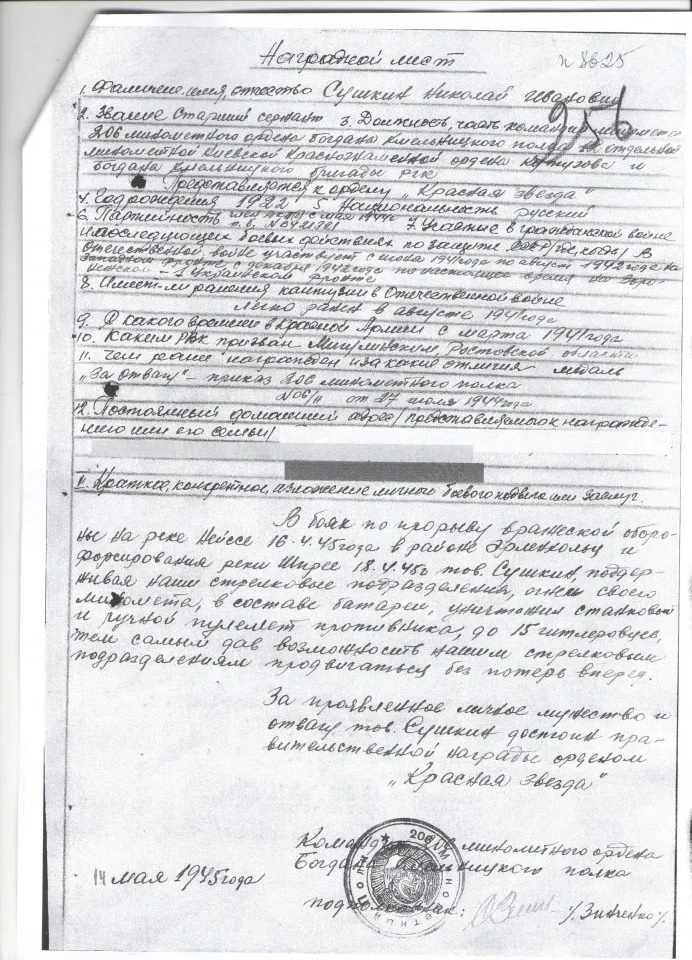 Наградной лист
п 8625
1. Фамилия, имя, отчество Сушкин Николай Иванович
2. Звание Старший сержант 3. Должность, часть командир миномета
206 минометного ордена Богдана Хмельницкого полка отдельной
минометной Киевской Краснознаменной ордена Кутузова и
Богдана Хмельницкого бригады РГК
Представляется к ордену "Красная звезда"
4. Год рождения 1922 5. Национальность русский
6. Партийность с мая 1944 7. Участие в гражданской войне
и последующих боевых действиях по защите СССР /где, когда/ В
отечественной войне участвует с июля 1941 года по август 1942 года на
Западном фронте, с декабря 1942 года по настоящее время на
1 Украинском фронте
8. Имеет ли ранения и контузии в Отечественной войне
легко ранен в августе 1941 года
9. С какого времени в Красной Армии с марта 1941 года
10. Каким РВК призван Мигулинским Ростовской области
11. Чем ранее награжден и за какие отличия медаль
"За отвагу" - приказ 206 минометного полка
N 06/н от 27 июля 1944 года
12. Постоянный домашний адрес /представляемого к награжде-
нию или его семьи/
I. Краткое, конкретное, изложение личного боевого подвига или заслуг.
В боях по прорыву вражеской оборо-
ны на реке Нейссе 16.4.45 года в районе Эрленхольц и
форсирования реки Шпрее 18.4.45г тов. Сушкин, поддер-
живая наши стрелковые подразделения, огнем своего
миномета, в составе батареи, уничтожил станковый
и ручной пулемет противника, до 15 гитлеровцев,
тем самым дав возможность нашим стрелковым
подразделениям продвигаться без потерь вперед.
За проявленное личное мужество и
отвагу тов. Сушкин достоин пра-
вительственной награды орденом
"Красная звезда"
Командир 206 минометного ордена
Богдана Хмельницкого полка
14 мая 1945 года
подполковник: /Зинченко/.